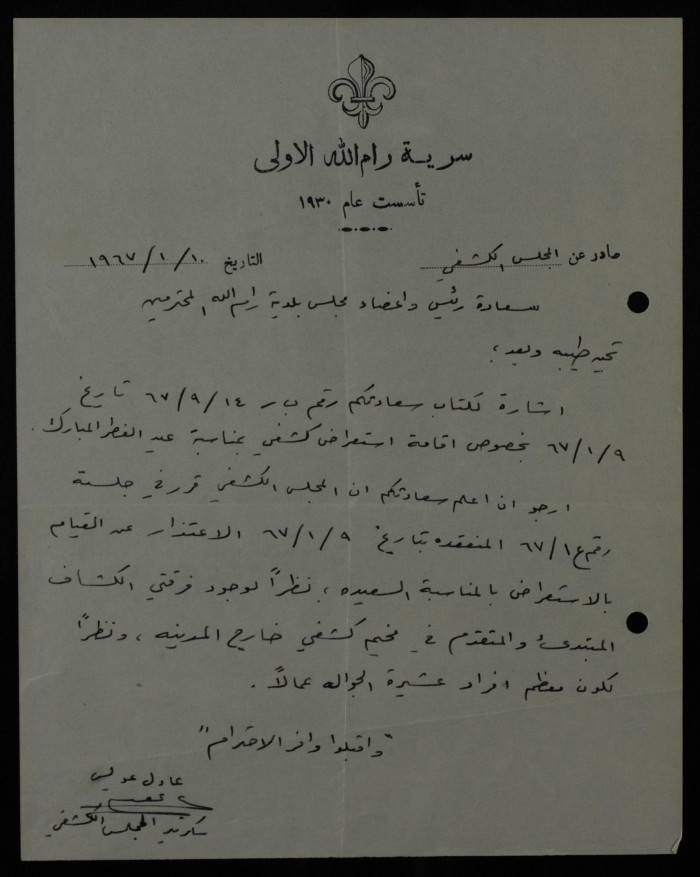 سرية رام الله الاولى
تأسست عام ١٩٣٠
صادر عن المجلس الكشفي التاريخ ١٩٦٧/١/١٠
سعادة رئيس واعضاء مجلس بلدية رام الله المحترمين
تحيه طيبه وبعد ،
اشارة لكتاب سعادتكم رقم ب ر ٦٧/٩/١٤ تاريخ
٦٧/١/٩ بخصوص اقامة استعراض كشفي بمناسبة عيد الفطر المبارك .
ارجو ان اعلم سعادتكم ان المجلس الكشفي قرر في جلسته
رقم ٦٧/١ المنعقده بتاريخ ٦٧/١/٩ الاعتذار عن القيام
بالاستعراض بالمناسبة السعيده ، نظراً لوجود فرقتي الكشاف
المبتدئ والمتقدم في مخيم كشفي خارج المدينه ، ونظراً
لكون معظم افراد عشيرة الجواله عمالاً .
"واقبلوا وافر الاحترام"
عادل عويس
سكرتير المجلس الكشفي